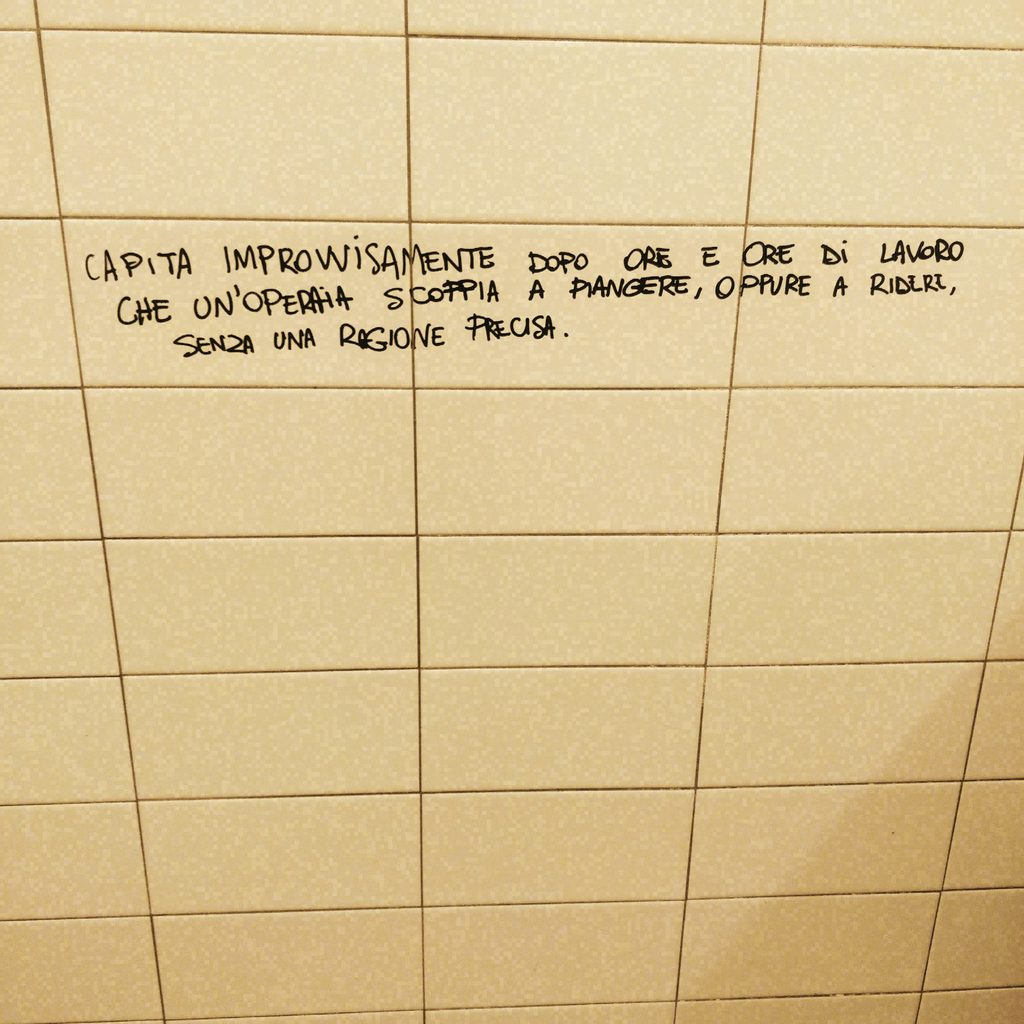 CAPITA IMPROVVISAMENTE DOPO ORE E ORE DI LAVORO
CHE UN'OPERAIA SCOPPIA A PIANGERE, OPPURE A RIDERE,
SENZA UNA RAGIONE PRECISA.